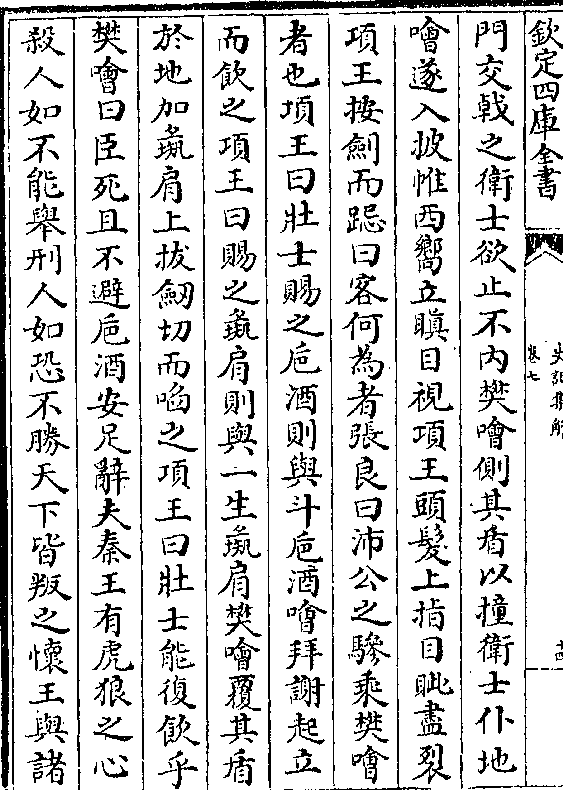 欽定四庫全書
史記集解
卷七
十四
門交戟之衛士欲止不内樊噲側其盾以撞衛士仆地
噲遂入披帷西嚮立瞋目視項王頭髮上指目眦盡裂
項王按劍而跽曰客何為者張良曰沛公之驂乗樊噲
者也項王曰壯士賜之巵酒則與斗巵酒噲拜謝起立
而飲之項王曰賜之彘肩則與一生彘肩樊噲覆其盾
於地加彘肩上拔劒切而啗之項王曰壯士能復飲乎
樊噲曰臣死且不避巵酒安足辭夫秦王有虎狼之心
殺人如不能舉刑人如恐不勝天下皆叛之懷王與諸